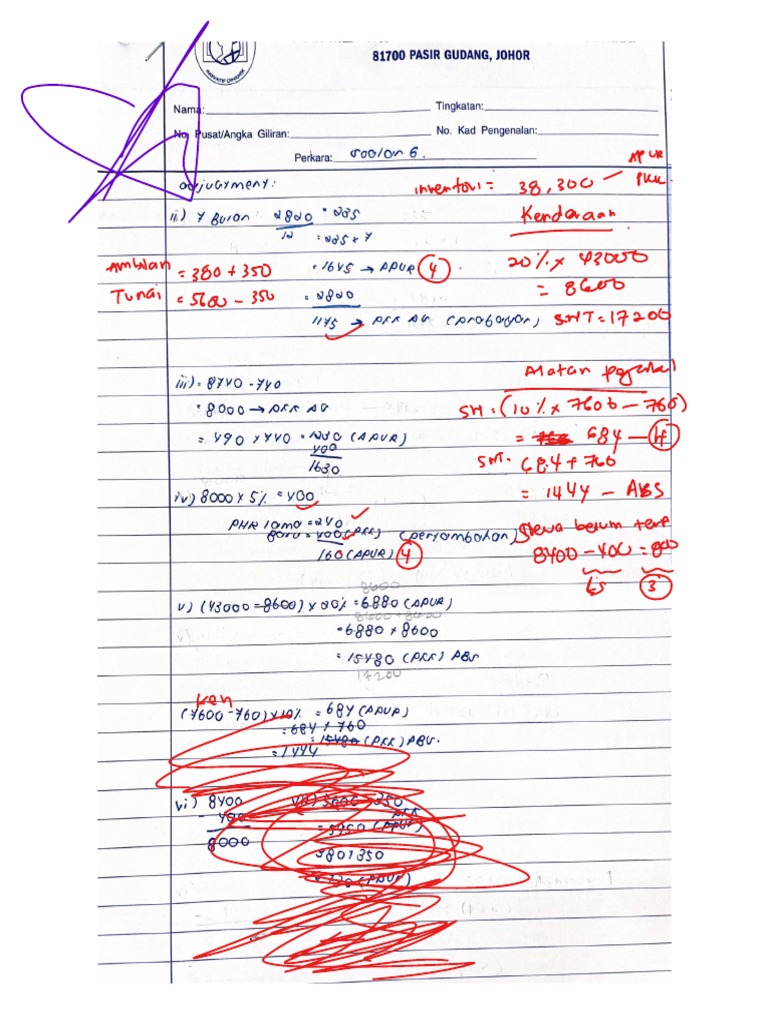 81700 PASIR GUDANG, JOHOR
Nama:
Tingkatan:
No. Pusat/Angka Giliran:
No. Kad Pengenalan:
Perkara: soalan 6.
adjustment:
Inventori = 38,300 — APUR
PKK
ii) 7 Bulan: 2820 = 235
12
= 235 x 7
Kenderaan
= 1645 → APUR 4
20% x 43000
= 8600
Ambilan = 380 + 350
Tunai = 5600 - 350
= 2820
1175 → PKK AS (prabayar)
SNT = 17200
iii) = 8740 - 740
= 8000 → PKK AS
= 490 + 740 = 1230 (APUR)
400
1630
SN = (10% x 7600 - 760)
= 684 — 4
SNT = 684 + 760
= 1444 — ABS
iv) 8000 x 5% = 400
PHR lama = 240
baru = 400 (PKK) (pertambahan)
160 (APUR) 4
Sewa belum
8400 - 400 = 800
3
8600
v) (43000 - 8600) x 20% = 6880 (APUR)
8600 + 8600
= 6880 + 8600
= 15480 (PKK) ABS
17200
ken
(7600 - 760) x 10% = 684 (APUR)
= 684 + 760
= 15480 (PKK) ABS.
= 1444
vi) 8400
- 400
8000
vii) 5600 - 350
PKK
= 5950 (APUR)
380 + 350